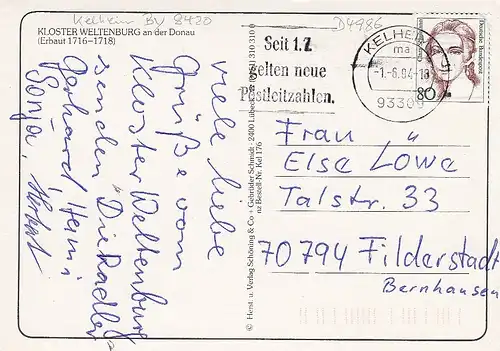 Kelheim BY 8420
D4986
KLOSTER WELTENBURG an der Donau
(Erbaut 1716–1718)
viele liebe
Grüße vom
Kloster Weltenburg
senden "Die Radler"
Gerhard, Heini
Sonja, Herbert
© Herst. u. Verlag Schöning & Co + Gebrüder Schmidt
Bestell-Nr. Kel 176
Seit 1.7.
gelten neue
Postleitzahlen.
KELHEIM
ma
-1.-6.94-18
93309
Deutsche Bundespost
80
Frau
Else Löwe
Talstr. 33
70794 Filderstadt
Bernhausen